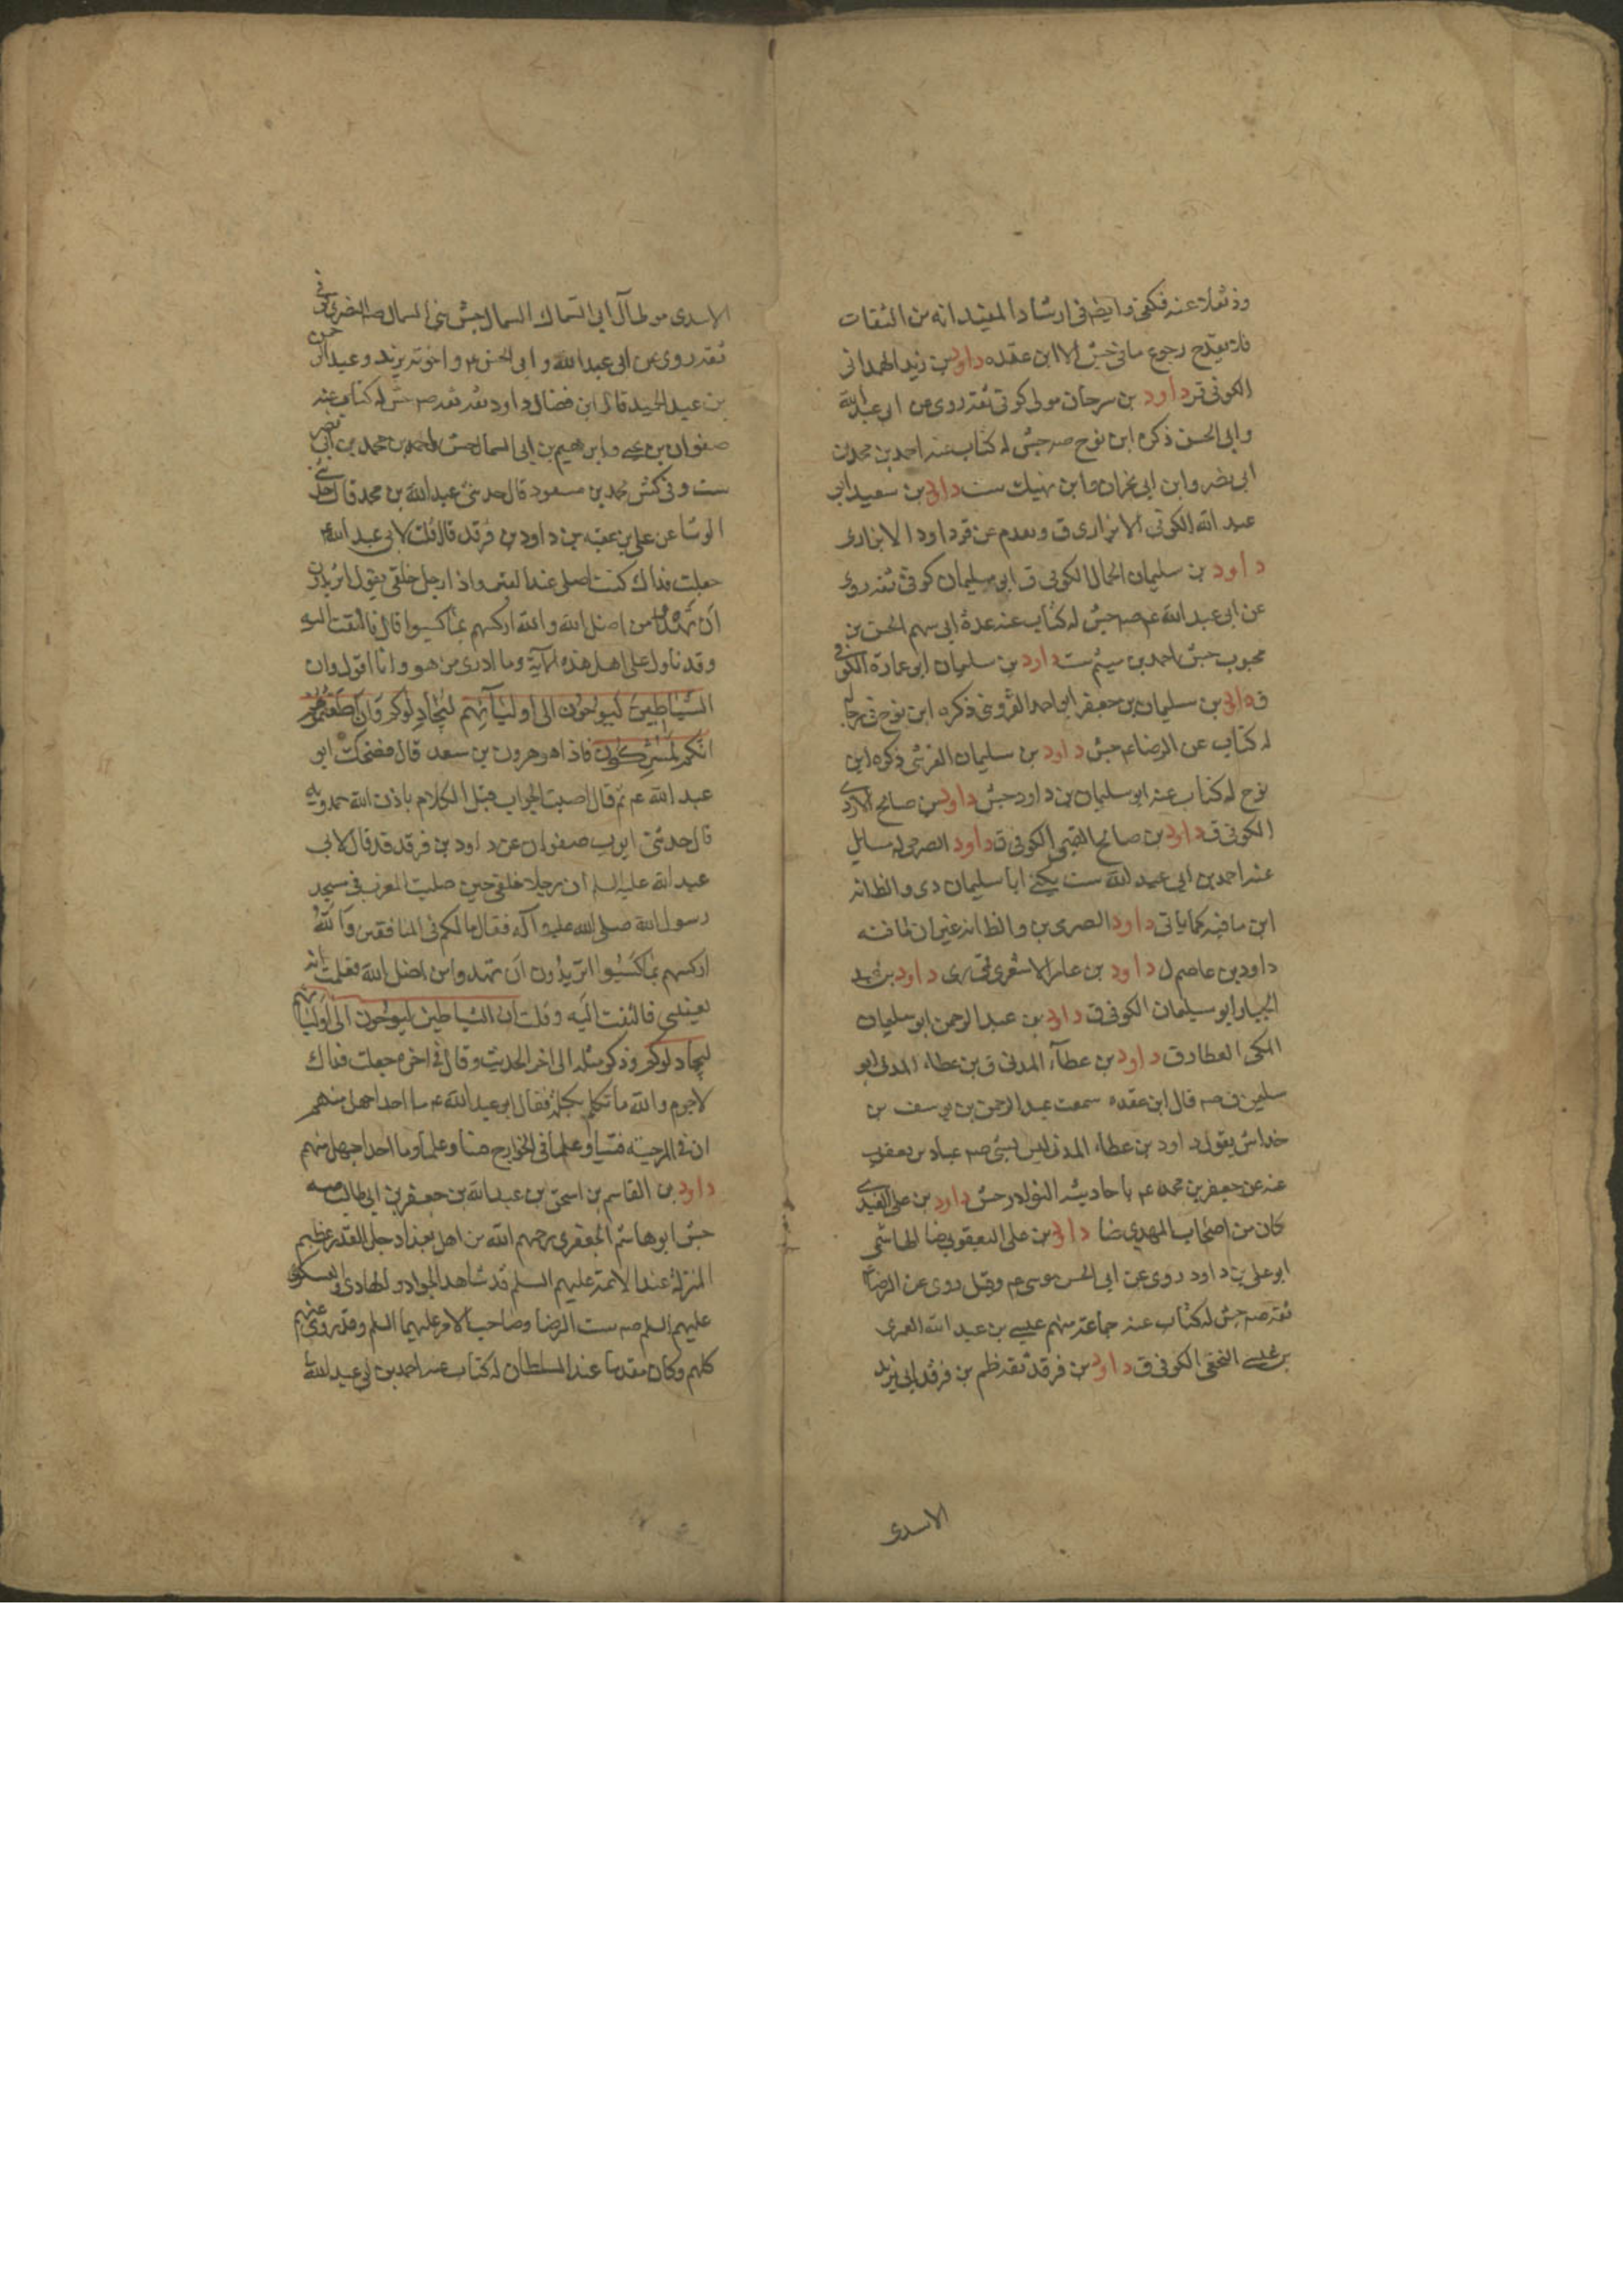 عنه فكفى وايضا فى ارشاد المفيد انه من الثقات
رجوع ما فى جش الا ابن عقده داود بن زيد الهمدانى
الكوفى قر داود بن سرحان مولى كوفى ثقه روى عن ابى عبد الله
وابى الحسن ذكره ابن نوح صه جش له كتاب عنه احمد بن محمد بن
ابى نصر وابن ابى نجران وابن نهيك ست داود بن سعيد ابى
عبد الله الكوفى الابزارى ق وتقدم عن قر داود الابزارى
داود بن سليمان الحمال الكوفى ق ابو سليمان كوفى ثقه روى
عن ابى عبد الله عم صه جش له كتاب عنه عدة الحسن بن
محبوب جش احمد بن ميثم ست داود بن سليمان ابو عمارة الكوفى
ق داود بن سليمان بن جعفر ابو احمد القزوينى ذكره ابن نوح فى رجاله
له كتاب عن الرضا عم جش داود بن سليمان القرشى ذكره ابن
نوح له كتاب عنه ابو سليمان بن داود جش داود بن صالح الازدى
الكوفى ق داود بن صالح الكوفى ق داود الصرمى له مسايل
عنه احمد بن ابى عبد الله ست يكنى ابا سليمان دى والظاهر
ما فيه كما ياتى داود الصرمى بن
داود بن عاصم ل داود بن عامر الاشعرى قمى رى داود بن عبد
الجبار ابو سليمان الكوفى ق داود بن عبد الرحمن ابو سليمان
المكى العطار ق داود بن عطآء المدنى ق بن عطاء المدنى ابو
سليمن ق صه قال ابن عقده سمعت عبد الرحمن بن يوسف بن
خداش يقول داود بن عطاء المدنى ليس بشى صه عباد بن يعقوب
عنه عن جعفر بن محمد عم باحاديثه النوادر جش داود بن على
كان من اصحاب المهدي ضا داود بن على اليعقوبى ضا الهاشمى
ابو على بن داود روى عن ابى الحسن موسى عم وقيل روى عن الرضا
ثقه صه جش له كتاب عنه جماعة منهم عيسى بن عبد الله العمرى
بن عيسى النخعى الكوفى ق داود بن فرقد ثقه ظم بن فرقد ابى يزيد
الاسدى
الاسدى مولى آل ابى السمال جش بنى السمال صه النضرى كوفى
ثقه روى عن ابى عبد الله وابى الحسن عم واخوته يزيد وعبد الرحمن
بن عبد الحميد قال ابن فضال داود ثقه ثقه صه جش له كتاب عنه
صفوان بن يحيى وابرهيم بن ابى السمال جش احمد بن محمد بن ابى نصر
ست وفى كش محمد بن مسعود قال حدثنى عبد الله بن محمد قال حدثنى
الوشا عن على بن عقبه بن داود بن فرقد قال قلت لابى عبد الله
جعلت فداك كنت اصلى عند القبر واذا رجل خلفى يقول اتريدون
ان تهدوا من اضل الله والله اركسهم بما كسبوا قال فالتفت اليه
وقد تاول على اهل هذه الآية وما ادرى من هو وانا اقول وان
الشياطين ليوحون الى اوليآئهم ليجادلوكم وان اطعتموهم
انكم لمشركون فاذا هو هرون بن سعد قال فضحك ابو
عبد الله عم ثم قال اصبت الجواب قبل الكلام باذن الله حمدويه
قال حدثنى ايوب صفوان عن داود بن فرقد قد قال لابى
عبد الله عليه السلم ان رجلا خلفى حين صليت المغرب فى مسجد
رسول الله صلى الله عليه وآله فقال ما لكم فى المنافقين والله
اركسهم بما كسبوا اتريدون ان تهدوا من اضل الله فعلمت انه
يعينى فالتفت اليه وقلت ان الشياطين ليوحون الى اوليائهم
ليجادلوكم وذكر مثله الى اخر الحديث وقال فى اخره جعلت فداك
لا جرم والله ما تكلم بكلمة فقال ابو عبد الله عم ما احد اجهل منهم
ان فى المرجئه فتيا وعلما فى الخوارج فتيا وعلما وما احد اجهل منهم
داود بن القاسم بن اسحق بن عبد الله بن جعفر بن ابى طالب صه
جش ابو هاشم الجعفرى رحمهم الله من اهل بغداد جليل القدر عظيم
المنزلة عند الائمة عليهم السلم قد شاهد الجواد والهادى والعسكرى
عليهم السلم صه ست الرضا وصاحب الامر عليهما السلم وقد روى عنهم
كلهم وكان مقدما عند السلطان له كتاب عنه احمد بن ابى عبد الله